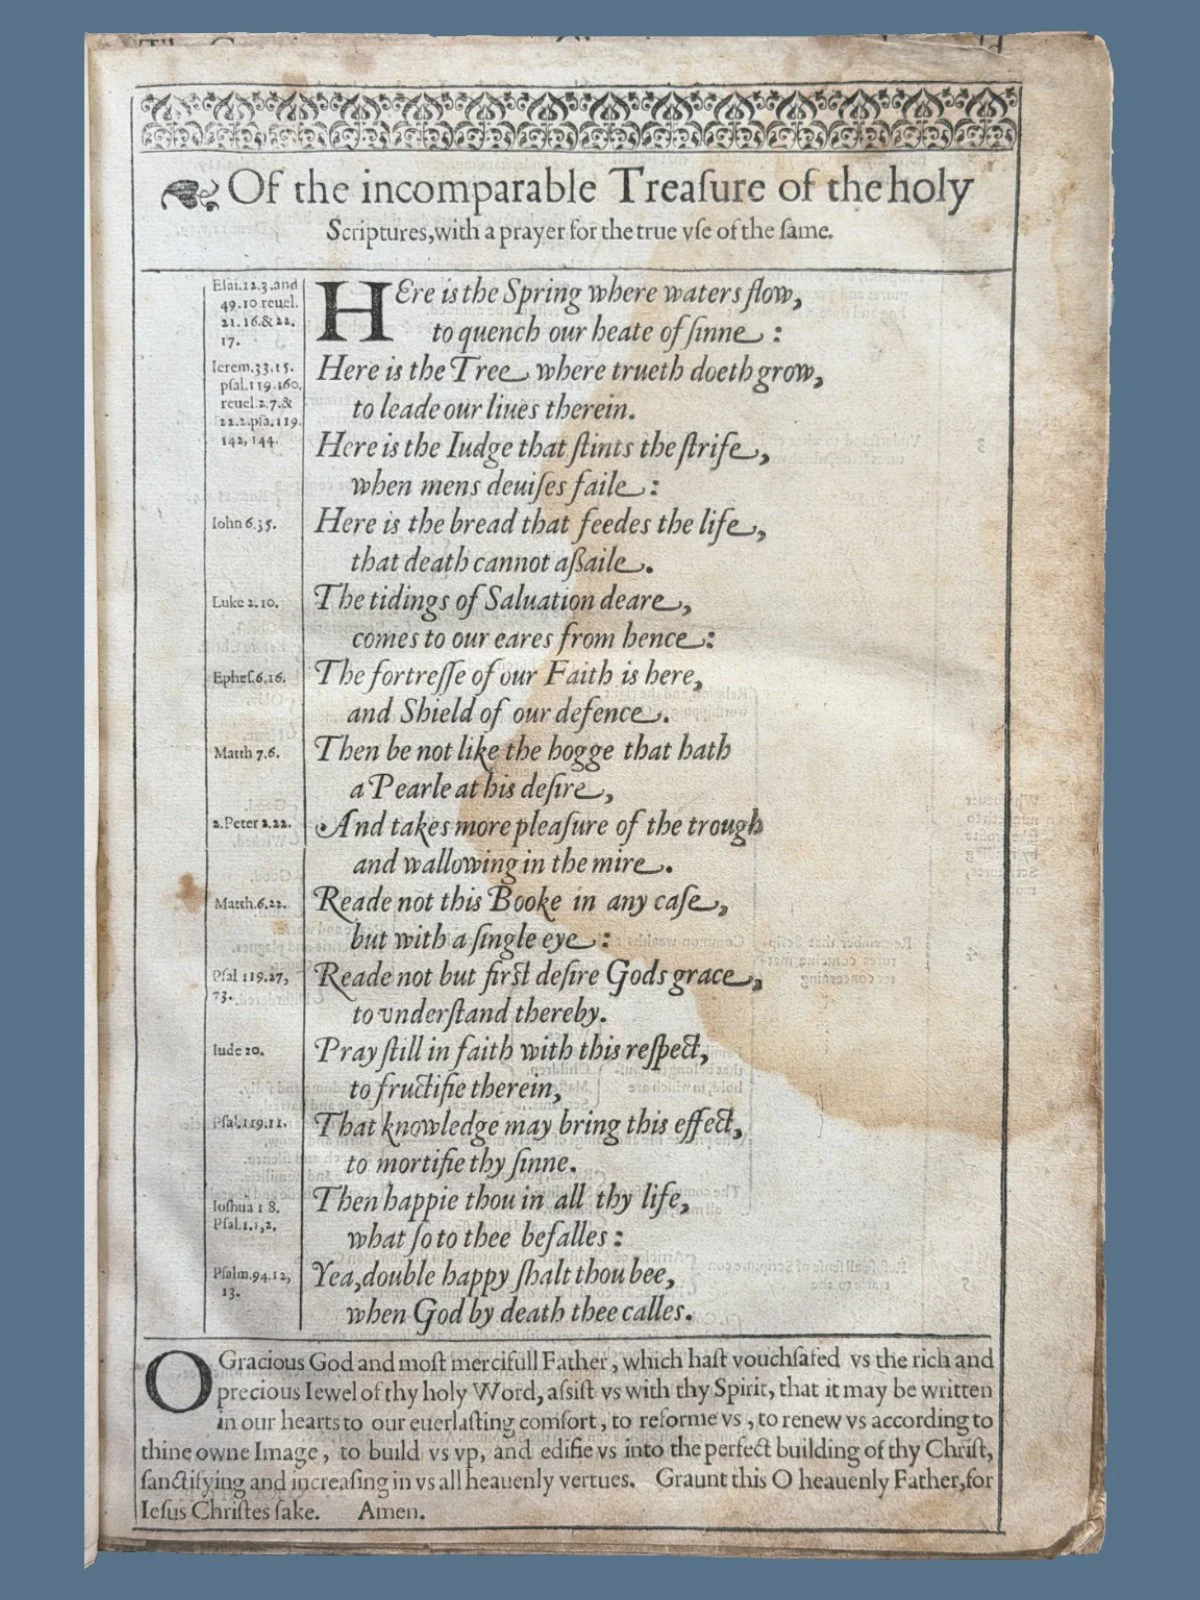 Of the incomparable Treaſure of the holy
Scriptures, with a prayer for the true vſe of the ſame.
Eſai.12.3.and
49.10.reuel.
21.16.&22.
17.
HEre is the Spring where waters flow,
to quench our heate of ſinne:
Ierem.33.15.
pſal.119.160.
reuel.2.7.&
22.2.pſa.119.
142,144.
Here is the Tree where trueth doeth grow,
to leade our liues therein.
Here is the Iudge that ſtints the ſtrife,
when mens deuiſes faile:
Iohn 6.35.
Here is the bread that feedes the life,
that death cannot aſſaile.
Luke 2.10.
The tidings of Saluation deare,
comes to our eares from hence:
Epheſ.6.16.
The fortreſſe of our Faith is here,
and Shield of our defence.
Matth 7.6.
Then be not like the hogge that hath
a Pearle at his deſire,
2.Peter 2.22.
And takes more pleaſure of the trough
and wallowing in the mire.
Matth.6.22.
Reade not this Booke in any caſe,
but with a ſingle eye:
Pſal 119.27,
73.
Reade not but firſt deſire Gods grace,
to vnderſtand thereby.
Iude 20.
Pray ſtill in faith with this reſpect,
to fructifie therein,
Pſal.119.11.
That knowledge may bring this effect,
to mortifie thy ſinne.
Ioſhua 1 8.
Pſal.1.1,2.
Then happie thou in all thy life,
what ſo to thee befalles:
Pſalm.94.12,
13.
Yea, double happy ſhalt thou bee,
when God by death thee calles.
O Gracious God and moſt mercifull Father, which haſt vouchſafed vs the rich and
precious Iewel of thy holy Word, aſsiſt vs with thy Spirit, that it may be written
in our hearts to our euerlaſting comfort, to reforme vs, to renew vs according to
thine owne Image, to build vs vp, and edifie vs into the perfect building of thy Chriſt,
ſanctifying and increaſing in vs all heauenly vertues. Graunt this O heauenly Father, for
Ieſus Chriſtes ſake. Amen.